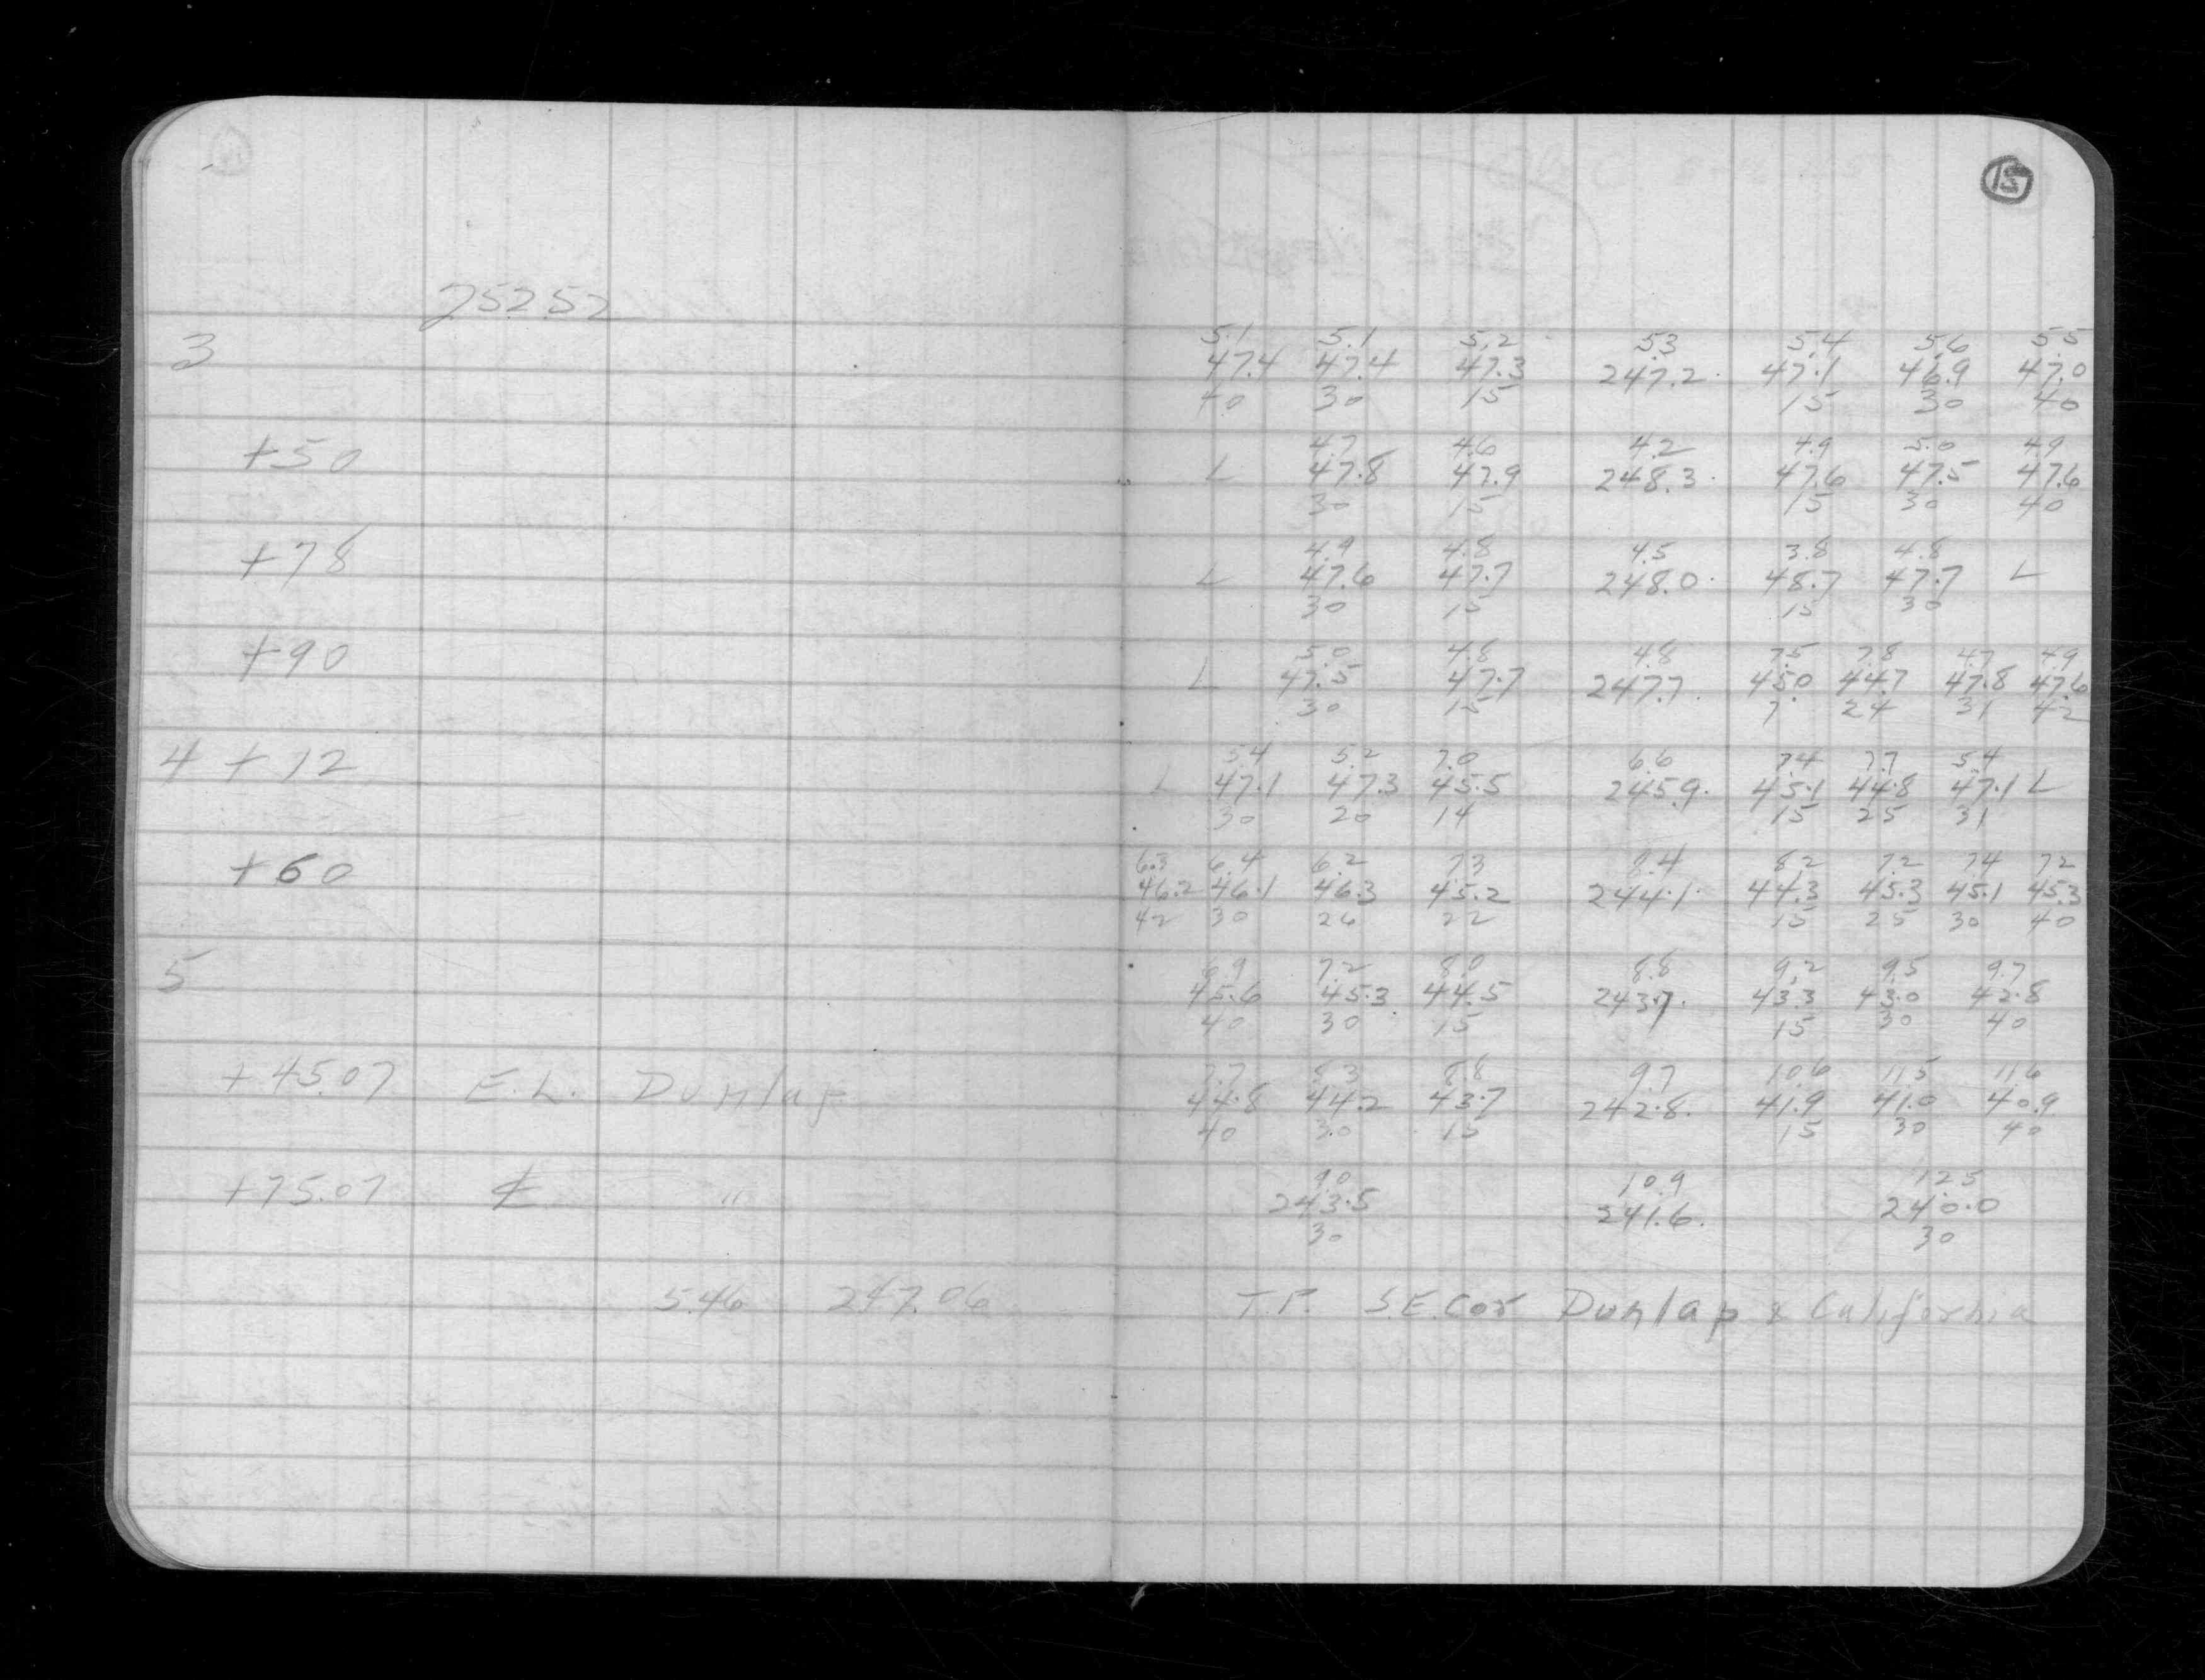 15
252.52
5.1 5.1 5.2 5.3 5.4 5.6 5.5
3 47.4 47.4 47.3 247.2 47.1 46.9 47.0
40 30 15 15 30 40
4.7 4.6 4.2 4.9 5.0 4.9
+50 L 47.8 47.9 248.3 47.6 47.5 47.6
30 15 15 30 40
4.9 4.8 4.5 3.8 4.8
+78 L 47.6 47.7 248.0 48.7 47.7 L
30 15 15 30
5.0 4.8 4.8 7.5 7.8 4.7 4.9
+90 L 47.5 47.7 247.7 45.0 44.7 47.8 47.6
30 15 7 24 31 42
5.4 5.2 7.0 6.6 7.4 7.7 5.4
4 + 12 L 47.1 47.3 45.5 245.9 45.1 44.8 47.1 L
30 20 14 15 25 31
6.3 6.4 6.2 7.3 8.4 8.2 7.2 7.4 7.2
+60 46.2 46.1 46.3 45.2 244.1 44.3 45.3 45.1 45.3
42 30 26 22 15 25 30 40
6.9 7.2 8.0 8.8 9.2 9.5 9.7
5 45.6 45.3 44.5 243.7 43.3 43.0 42.8
40 30 15 15 30 40
7.7 8.3 8.8 9.7 10.6 11.5 11.6
+45.07 E.L. Dunlap 44.8 44.2 43.7 242.8 41.9 41.0 40.9
40 30 15 15 30 40
9.0 10.9 12.5
+75.07 ₵ " 243.5 241.6 240.0
30 30
5.46 247.06 T.P. S.E. Cor Dunlap & California